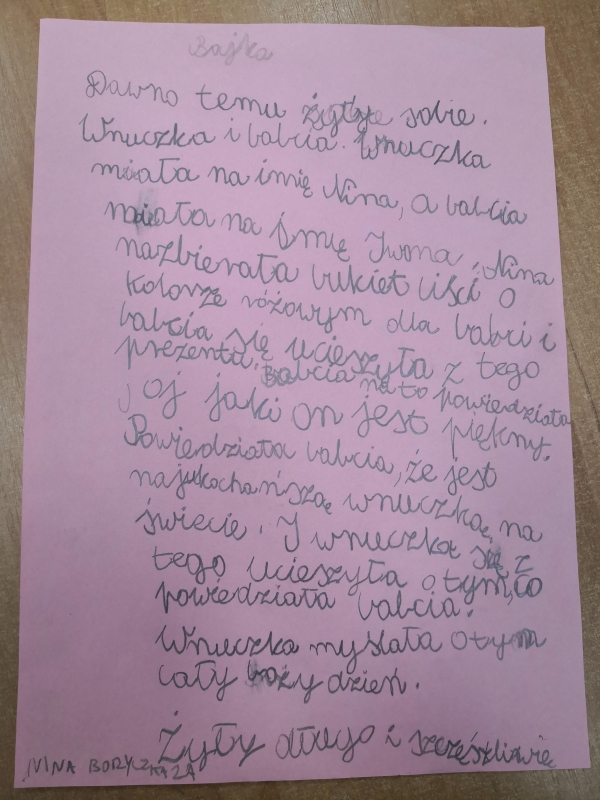 Bajka
Dawno temu żyły sobie.
Wnuczka i babcia. Wnuczka
miała na imię Nina, a babcia
miała na imię Iwona. Nina
nazbierała bukiet liści o
kolorze różowym dla babci i
babcia się ucieszyła z tego
prezentu. Babcia na to powiedziała
oj jaki on jest piękny.
Powiedziała babcia, że jest
najukochańszaą wnuczką, na
świecie. I wnuczka się z
tego ucieszyła o tym, co
powiedziała babcia.
Wnuczka myslała o tym
cały boży dzień.
Żyły długo i szczęśliwie
NINA BORYCZKA 2A